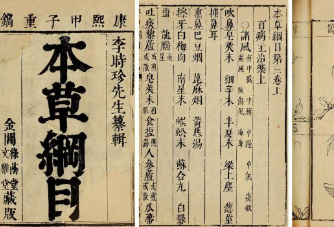 康熙甲子重鐫
李時珍先生纂輯
本草綱目
金閶
綠蔭堂
文雅堂
藏版
本草綱目第三卷上
百病主治藥上
○諸風
吹鼻 皂莢末 細辛末 半夏末 梁上塵 葱莖
插鼻耳
熏鼻 巴豆烟 蓖麻烟 黃芪湯
擦牙 白梅肉 南星末 蜈蚣末 蘇合丸 白礬
吐痰 藜蘆 皂莢末 食鹽 人參蘆 瓜蒂